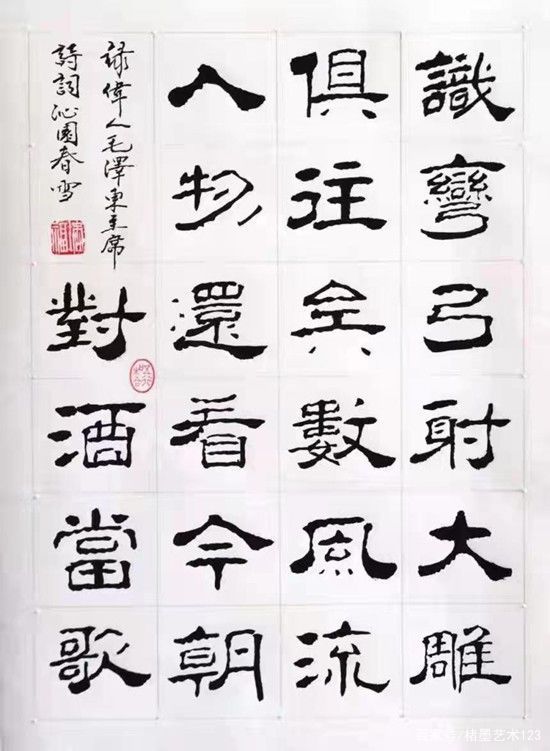 識彎弓射大雕
俱往矣數風流
人物還看今朝
對酒當歌
録偉人毛澤東主席
詩詞沁園春雪
百家号/楮墨艺术123